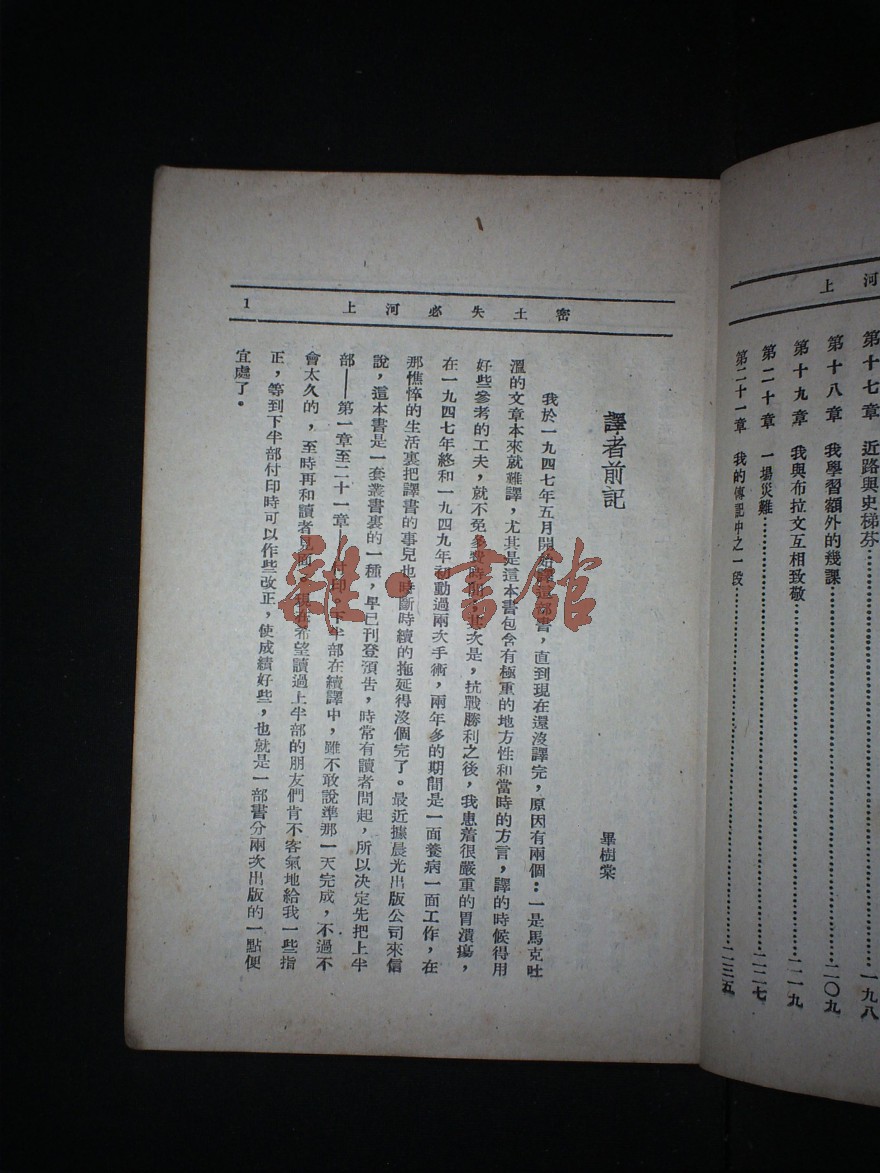 上河
第十七章 近路與史梯芬 一九八
第十八章 我學習額外的幾課 二〇九
第十九章 我與布拉文互相致敬 二一九
第二十章 一場災難 二二七
第二十一章 我的傳記中之一段 二三五
上河必失士密
1
譯者前記
畢樹棠
我於一九四七年五月開始譯這部書，直到現在還沒譯完，原因有兩個：一是馬克吐
溫的文章本來就難譯，尤其是這本書包含有極重的地方性和當時的方言，譯的時候得用
好些參考的工夫，就不免多費時間，其次是，抗戰勝利之後，我患着很嚴重的胃潰瘍，
在一九四七年終和一九四九年初動過兩次手術，兩年多的期間是一面養病一面工作，在
那憔悴的生活裏把譯書的事兒也時斷時續的拖延得沒個完了。最近據晨光出版公司來信
說，這本書是一套叢書裏的一種，早已刊登預告，時常有讀者問起，所以決定先把上半
部——第一章至二十一章——付印。下半部在續譯中，雖不敢說準那一天完成，不過不
會太久的，至時再和讀者見面。現在希望讀過上半部的朋友們肯不客氣地給我一些指
正，等到下半部付印時可以作些改正，使成績好些，也就是一部書分兩次出版的一點便
宜處了。
雜·書館